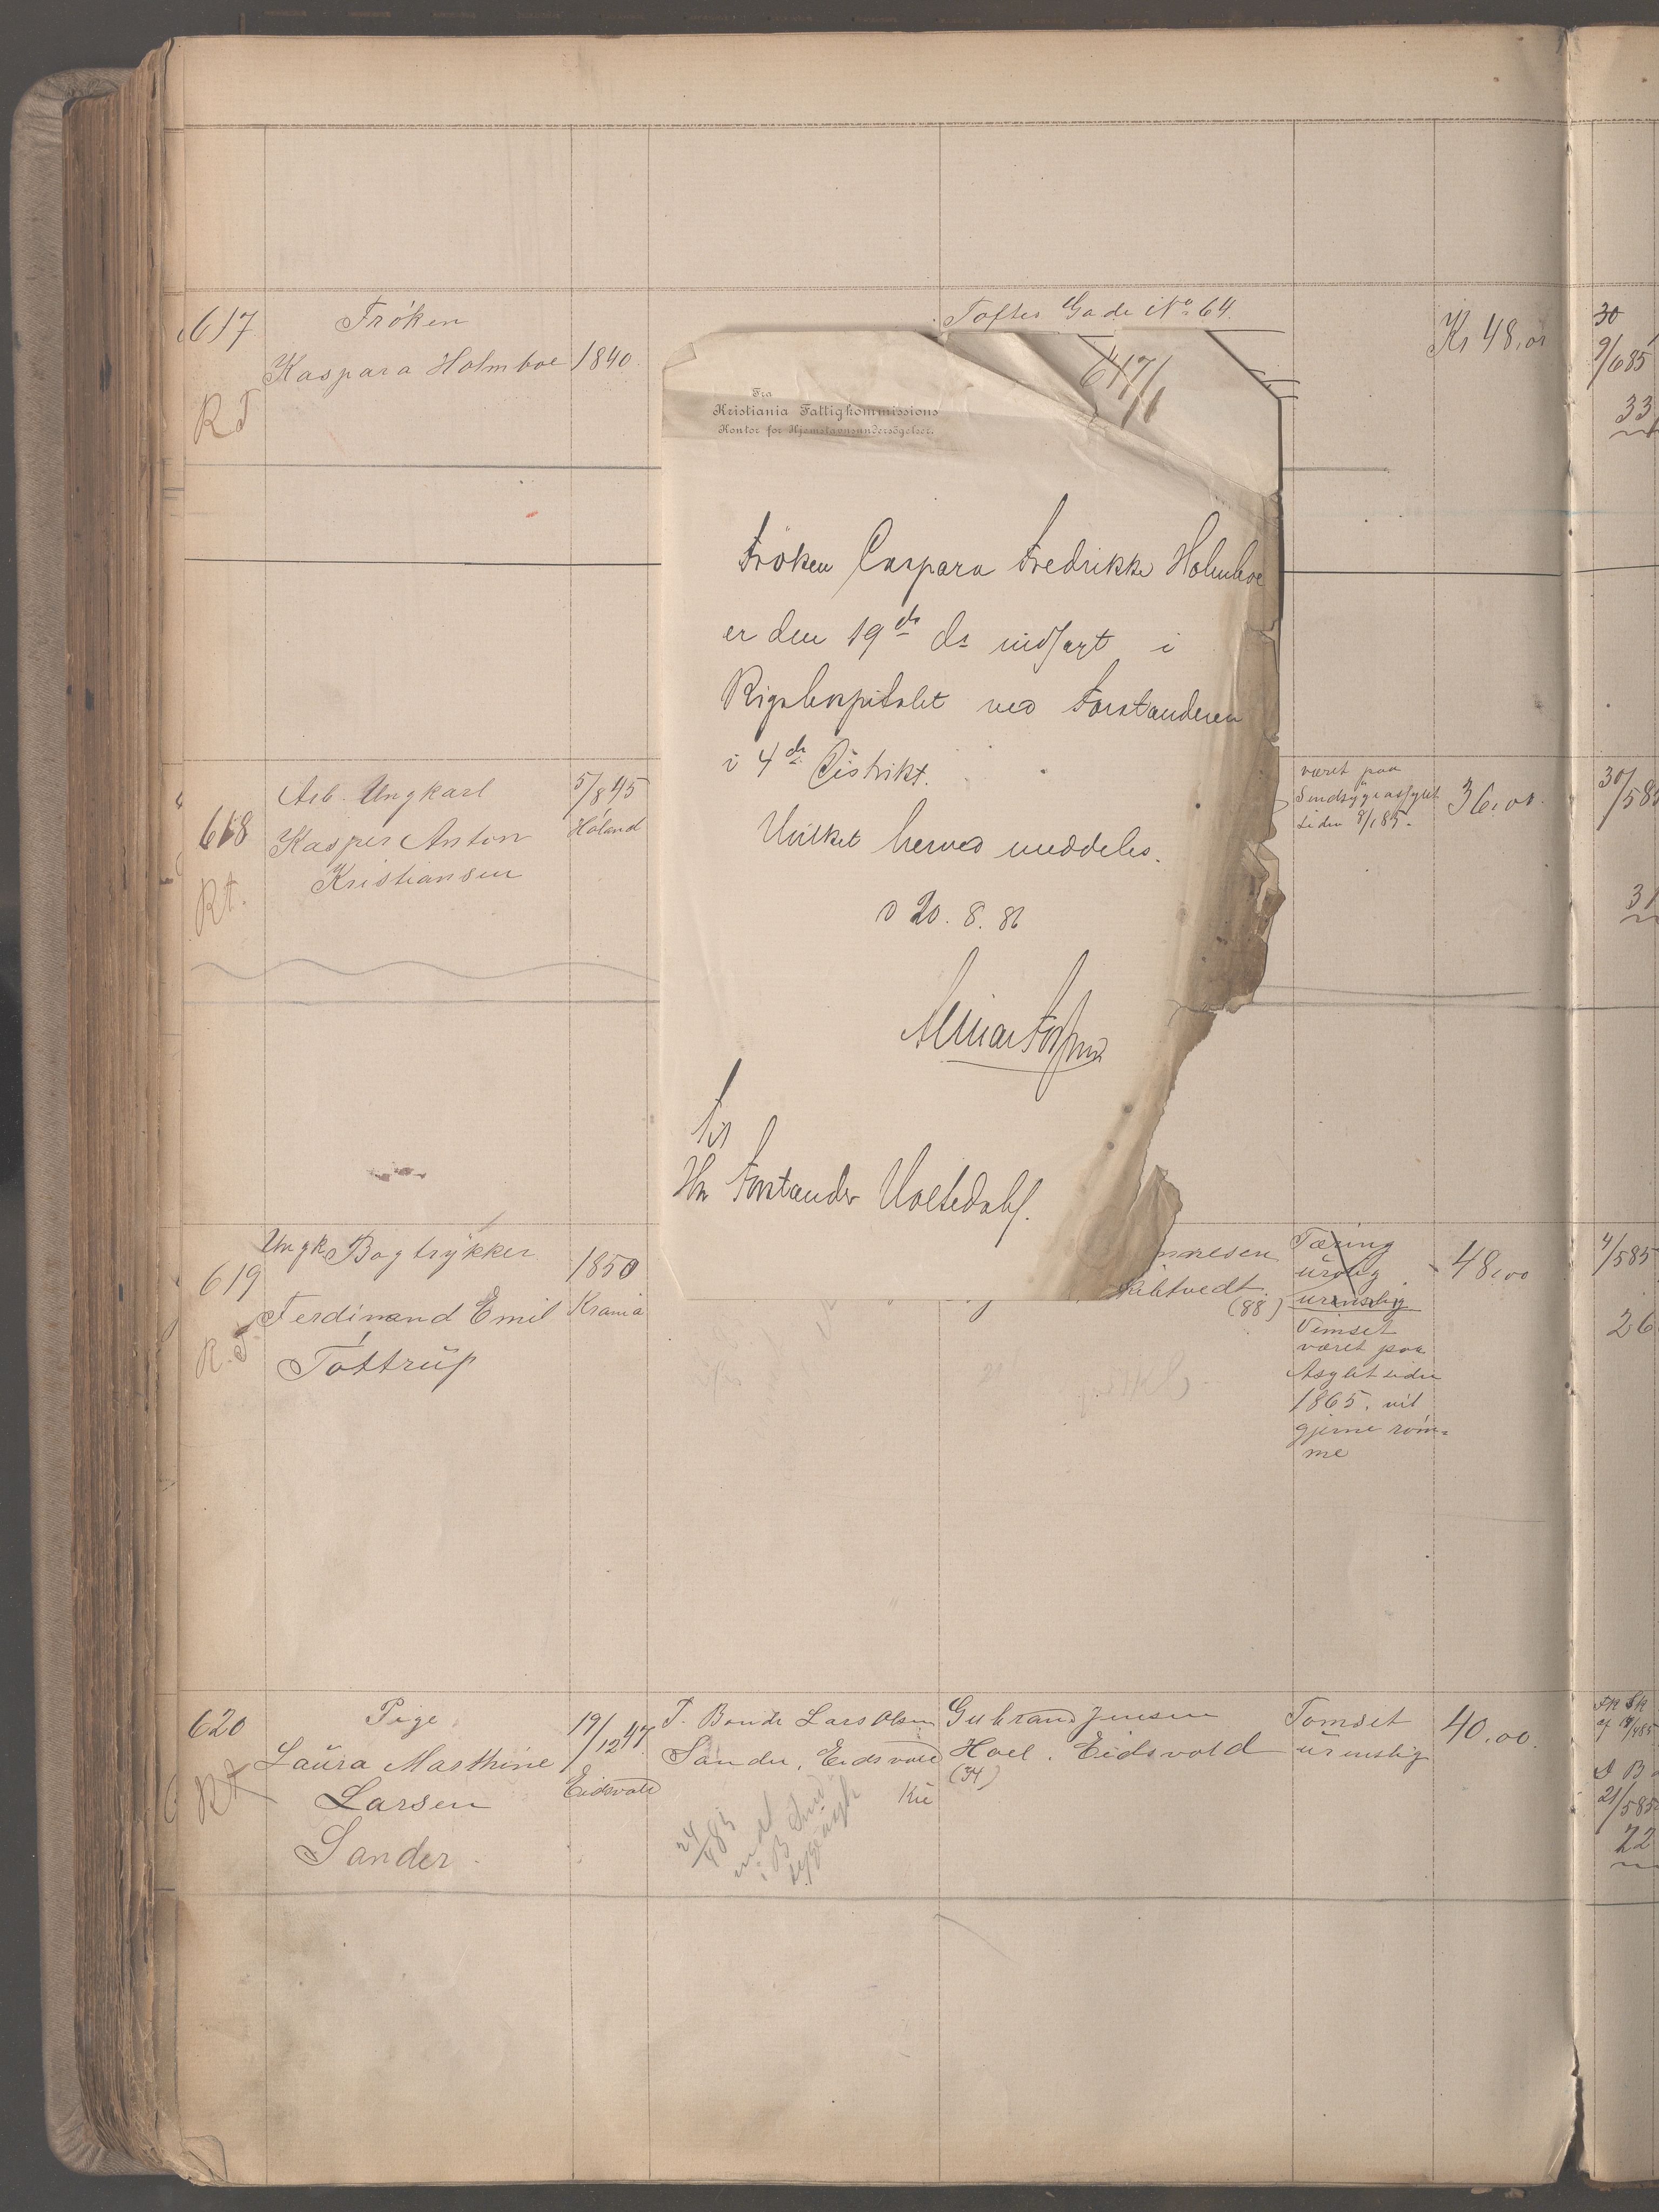 617
Fröken
Kaspara Holmboe
1840
Toftes Gade No 64.
Kr 48,00
30
9/685
33
R T
617/
Fra
Kristiania Fattigkommissions
Kontor for Hjemstavnsundersøgelser.
Fröken Caspara Fredrikke Holmboe
er den 19de ds indlagt i
Rigshospitalet ved Forstanderen
i 4de Distrikt.
Hvilket herved meddeles.
D 20. 8. 86
Til
Hr Forstander
618
Arb. Ungkarl
Kasper Anton
Kristiansen
5/8 45
Höland
været paa
Sindsygeasylet
siden 9/1 85.
36,00.
30/585
31
Rt.
619
Ungk Bogtrykker
Ferdinand Emil
Tottrup
1850
Krania
(88)
Tæring
urolig
urenslig
Vimset
været paa
Asylet siden
1865. vil
gjerne röm=
me
48,00
4/585
26
R.T
620
Pige
Laura Marthine
Larsen
Sander
19/12 47
Eidsvold
F. Bonde Lars Olsen
Sander, Eidsvold
Gulbrand Jensen
Hoel. Eidsvold
(34)
Tomset
urenslig
40,00.
21/585
22
RT
24/4 85
indl
i B Sind
sygeasyl